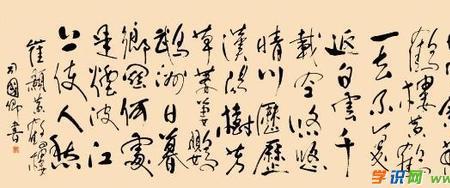 鶴樓黄鶴
一去不復
返白雲千
載空悠悠
晴川歷歷
漢陽樹芳
草萋萋鸚
鵡洲日暮
鄉關何處
是煙波江
上使人愁
崔顥黄鶴樓
國卿書
学识网